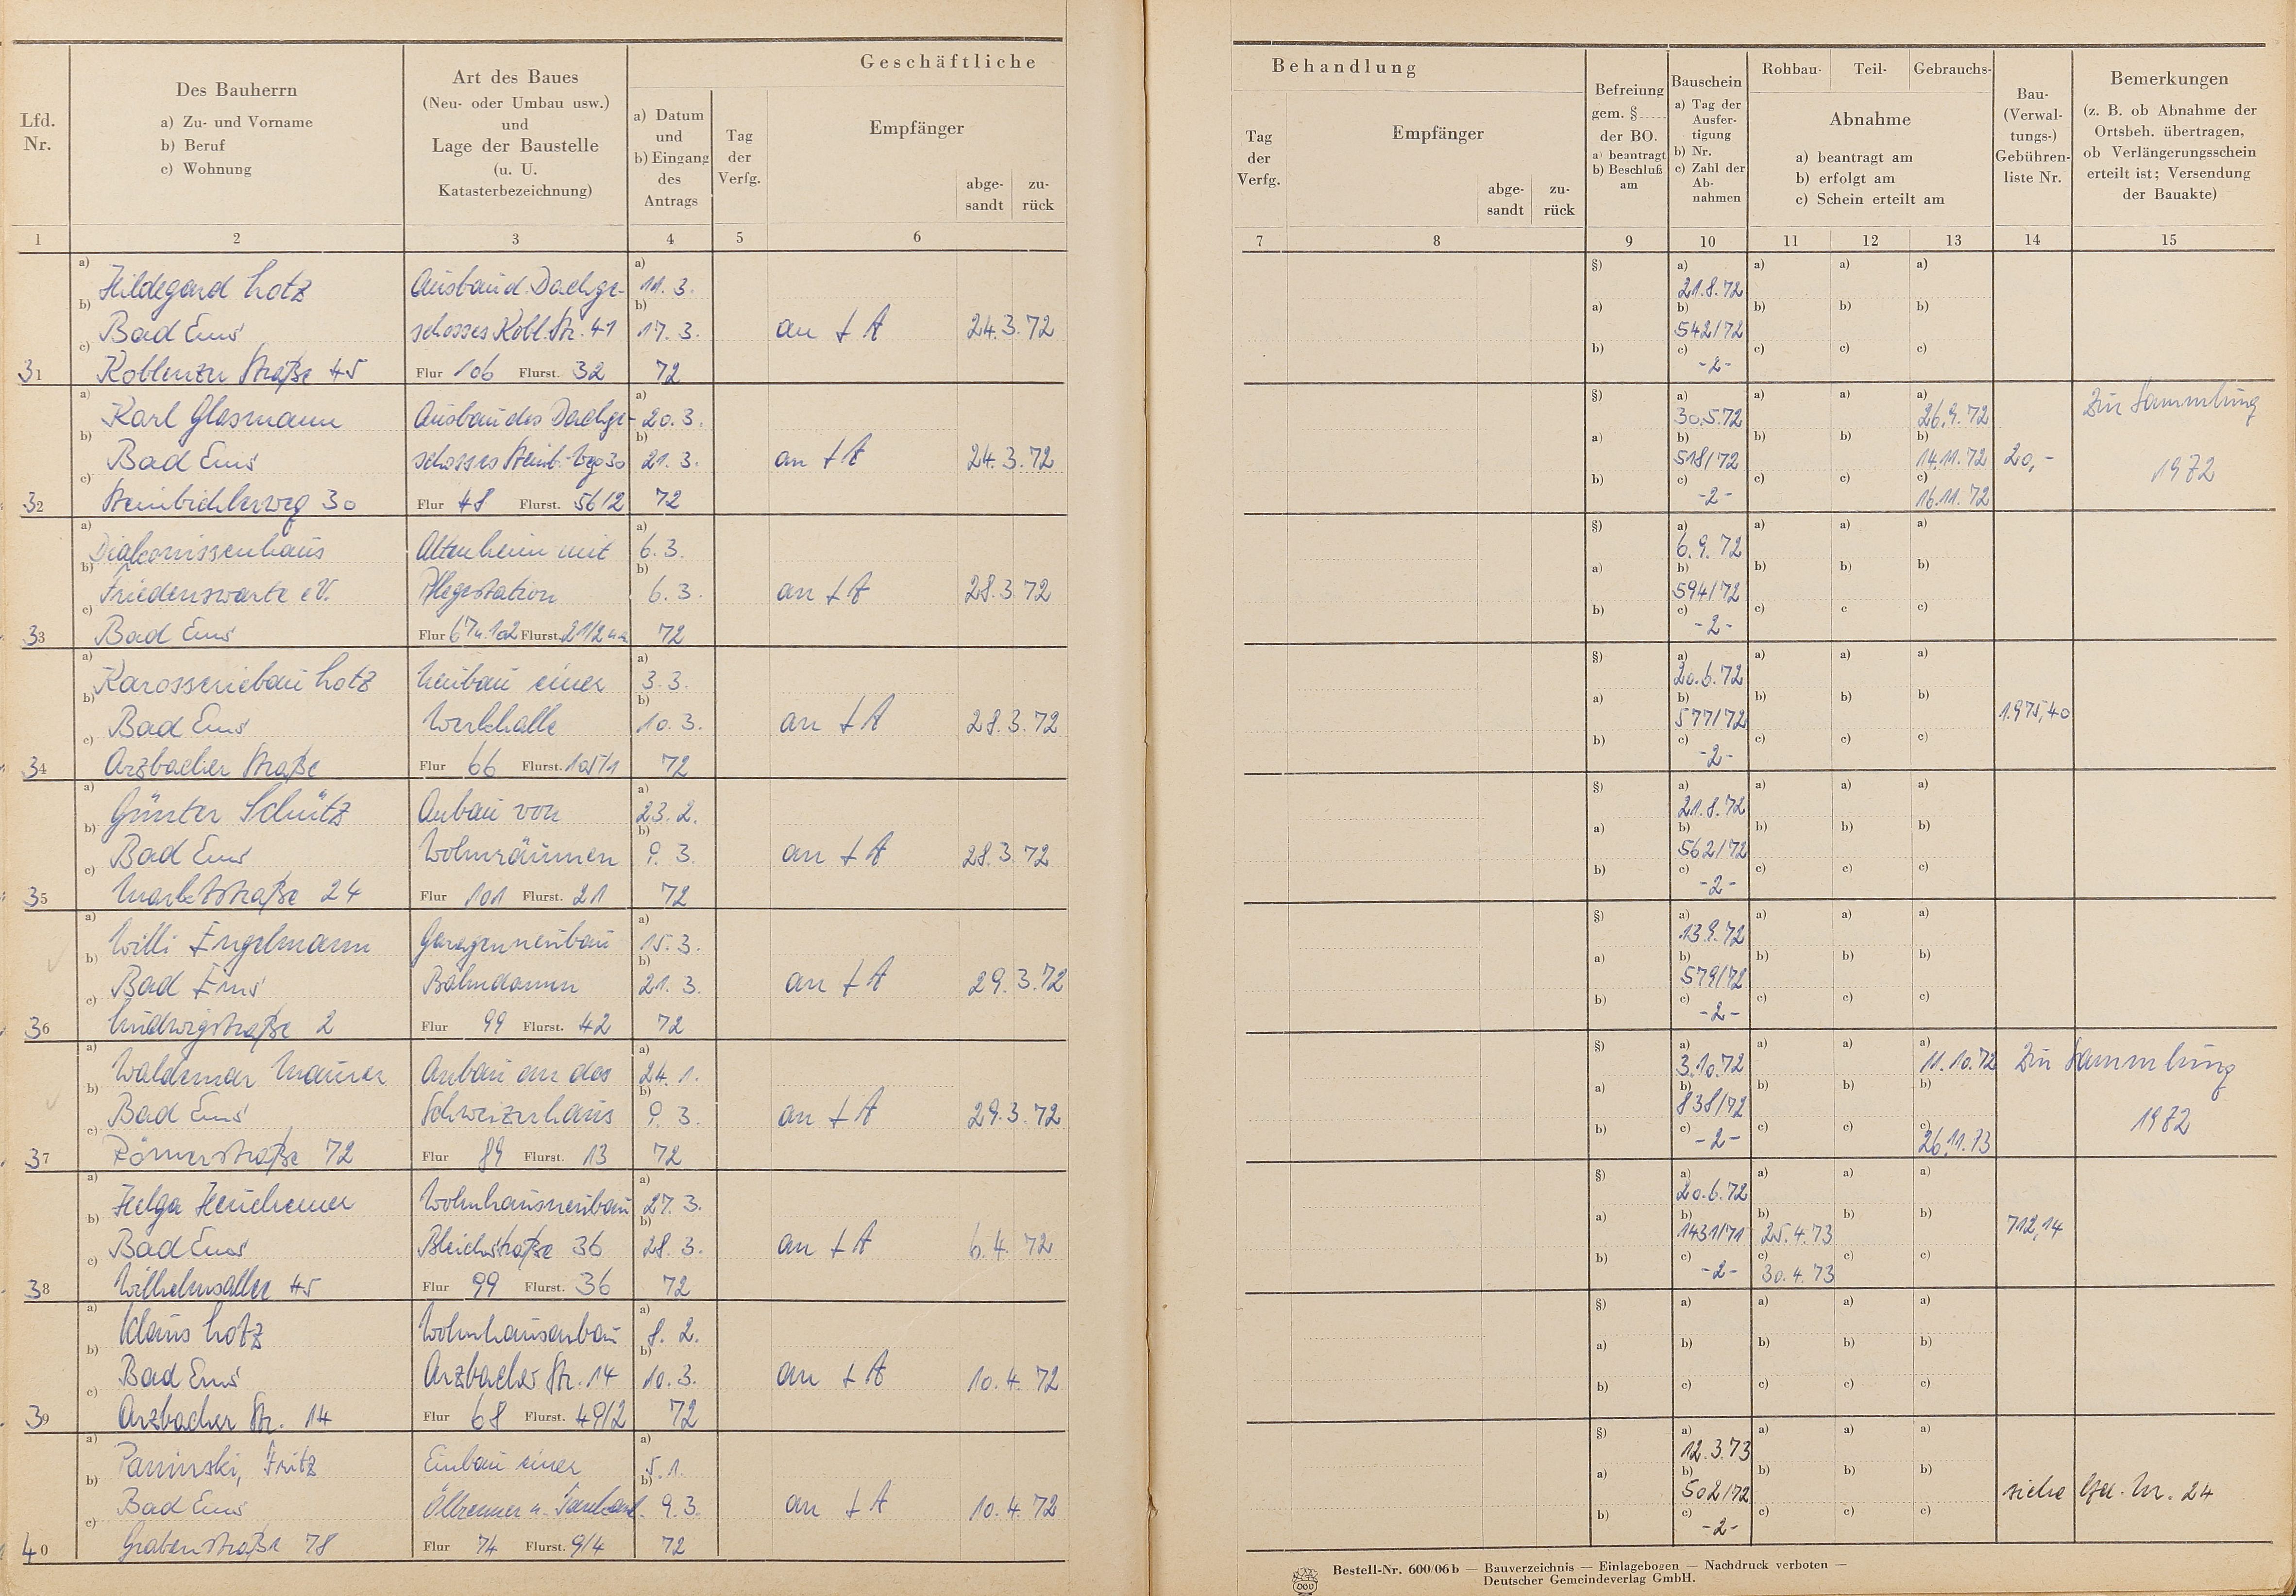 Geschäftliche
Behandlung
Lfd. Nr.
Des Bauherrn
a) Zu- und Vorname
b) Beruf
c) Wohnung
Art des Baues
(Neu- oder Umbau usw.)
und
Lage der Baustelle
(u. U.
Katasterbezeichnung)
a) Datum
und
b) Eingang
des
Antrags
Tag
der
Verfg.
Empfänger
abge-
sandt
zu-
rück
Tag
der
Verfg.
Empfänger
abge-
sandt
zu-
rück
Befreiung
gem. §
der BO.
a) beantragt
b) Beschluß
am
Bauschein
a) Tag der
Ausfer-
tigung
b) Nr.
c) Zahl der
Ab-
nahmen
Rohbau- Teil- Gebrauchs-
Abnahme
a) beantragt am
b) erfolgt am
c) Schein erteilt am
Bau-
(Verwal-
tungs-)
Gebühren-
liste Nr.
Bemerkungen
(z. B. ob Abnahme der
Ortsbeh. übertragen,
ob Verlängerungsschein
erteilt ist; Versendung
der Bauakte)
1 2 3 4 5 6 7 8 9 10 11 12 13 14 15
a) Hildegard Lotz Ausbau d. Dachge- a) 11. 3. §) a) 21.8.72 a) a) a)
b) Bad Ems schosses Kobl. Str. 41 b) 17. 3. an LA 24.3.72 a) b) 542/72 b) b) b)
31 c) Koblenzer Straße 45 Flur 106 Flurst. 32 72 b) c) -2- c) c) c)
a) Karl Glasmann Ausbau des Dachge- a) 20. 3. §) a) 30.5.72 a) a) a) 26.9.72 Zur Sammlung
b) Bad Ems schosses Steinb.-Weg 30 b) 21. 3. an LA 24.3.72 a) b) 518/72 b) b) b) 14.11.72 20,- 1972
32 c) Steinbichlerweg 30 Flur 48 Flurst. 56/2 72 b) c) -2- c) c) c) 16.11.72
a) Diakonissenhaus Altenheim mit a) 6. 3. §) a) 6.9.72 a) a) a)
b) Friedenswarte e.V. Pflegestation b) 6. 3. an LA 28.3.72 a) b) 594/72 b) b) b)
33 c) Bad Ems Flur 67u.102 Flurst. 21/2 72 b) c) -2- c) c c)
a) Karosseriebau Lotz Neubau einer a) 3. 3. §) a) 20.6.72 a) a) a)
b) Bad Ems Werkhalle b) 10. 3. an LA 28.3.72 a) b) 577/72 b) b) b) 1.975,40
34 c) Arzbacher Straße Flur 66 Flurst. 105/1 72 b) c) -2- c) c) c)
a) Günter Schütz Anbau von a) 23. 2. §) a) 21.8.72 a) a) a)
b) Bad Ems Wohnräumen b) 9. 3. an LA 28.3.72 a) b) 562/72 b) b) b)
35 c) Marktstraße 24 Flur 101 Flurst. 21 72 b) c) -2- c) c) c)
a) Willi Engelmann Garagenneubau a) 15. 3. §) a) 13.9.72 a) a) a)
b) Bad Ems Bahndamm b) 21. 3. an LA 29.3.72 a) b) 579/72 b) b) b)
36 c) Ludwigstraße 2 Flur 99 Flurst. 42 72 b) c) -2- c) c) c)
a) Waldemar Maurer Anbau an das a) 24. 1. §) a) 3.10.72 a) a) a) 11.10.72 Zur Sammlung
b) Bad Ems Schweizerhaus b) 9. 3. an LA 29.3.72 a) b) 838/72 b) b) b) 1972
37 c) Römerstraße 72 Flur 89 Flurst. 13 72 b) c) -2- c) c) c) 26.11.73
a) Helga Heuchemer Wohnhausneubau a) 27. 3. §) a) 20.6.72 a) a) a)
b) Bad Ems Bleichstraße 36 b) 28. 3. an LA 6.4.72 a) b) 1431/71 b) 25.4.73 b) b) 712,14
38 c) Wilhelmsallee 45 Flur 99 Flurst. 36 72 b) c) -2- c) 30.4.73 c) c)
a) Klaus Lotz Wohnhausanbau a) 8. 2. §) a) a) a) a)
b) Bad Ems Arzbacher Str. 14 b) 10. 3. an LA 10.4.72 a) b) b) b) b)
39 c) Arzbacher Str. 14 Flur 68 Flurst. 49/2 72 b) c) c) c) c)
a) Paninski, Fritz Einbau einer a) 5. 1. §) a) 12.3.73 a) a) a)
b) Bad Ems Ölbrenner u. b) 9. 3. an LA 10.4.72 a) b) 502/72 b) b) b) siehe lfd. Nr. 24
40 c) Grabenstraße 78 Flur 74 Flurst. 9/4 72 b) c) -2- c) c) c)
Bestell-Nr. 600/06 b — Bauverzeichnis — Einlagebogen — Nachdruck verboten —
Deutscher Gemeindeverlag GmbH.